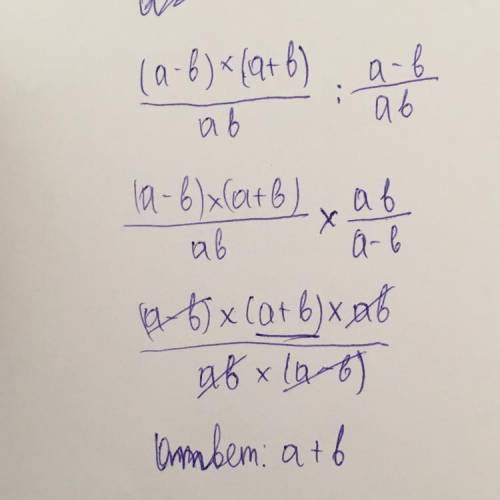 (a-b)×(a+b)/ab : a-b/ab
(a-b)×(a+b)/ab × ab/a-b
(a-b)×(a+b)×ab/ab×(a-b)
Ответ: a+b